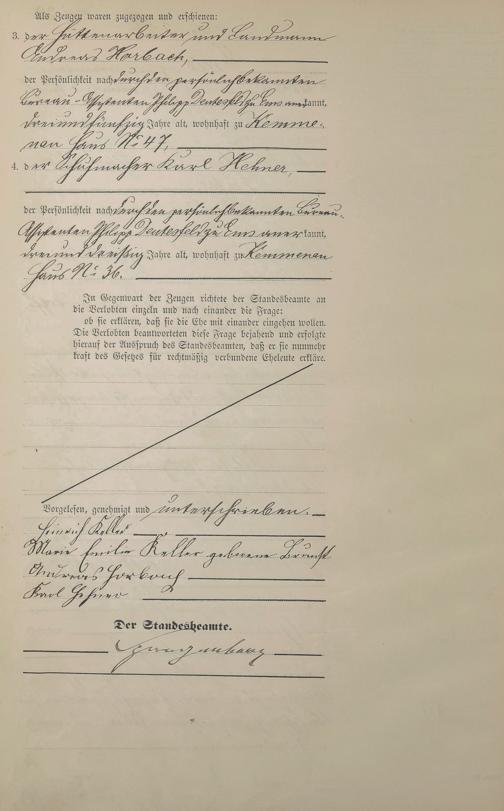 Als Zeugen waren zugezogen und erschienen:
3. der Hüttenarbeiter und Landmann
Andreas Horbach,
der Persönlichkeit nach durch den persönlich bekannten
Bureau-Assistenten Philipp Deutesfeld zu Ems anerkannt,
dreiundfünfzig Jahre alt, wohnhaft zu Kemme-
nau Haus No 47,
4. der Schuhmacher Karl Hehner,
der Persönlichkeit nach durch den persönlich bekannten Bureau-
Assistenten Philipp Deutesfeld zu Ems anerkannt,
dreiunddreissig Jahre alt, wohnhaft zu Kemmenau
Haus No 36.
In Gegenwart der Zeugen richtete der Standesbeamte an
die Verlobten einzeln und nach einander die Frage:
ob sie erklären, daß sie die Ehe mit einander eingehen wollen.
Die Verlobten beantworteten diese Frage bejahend und erfolgte
hierauf der Ausspruch des Standesbeamten, daß er sie nunmehr
kraft des Gesetzes für rechtmäßig verbundene Eheleute erkläre.
Vorgelesen, genehmigt und unterschrieben.
Heinrich Keller
Marie Emilie Keller geborene
Andreas Horbach
Karl Hehner
Der Standesbeamte.